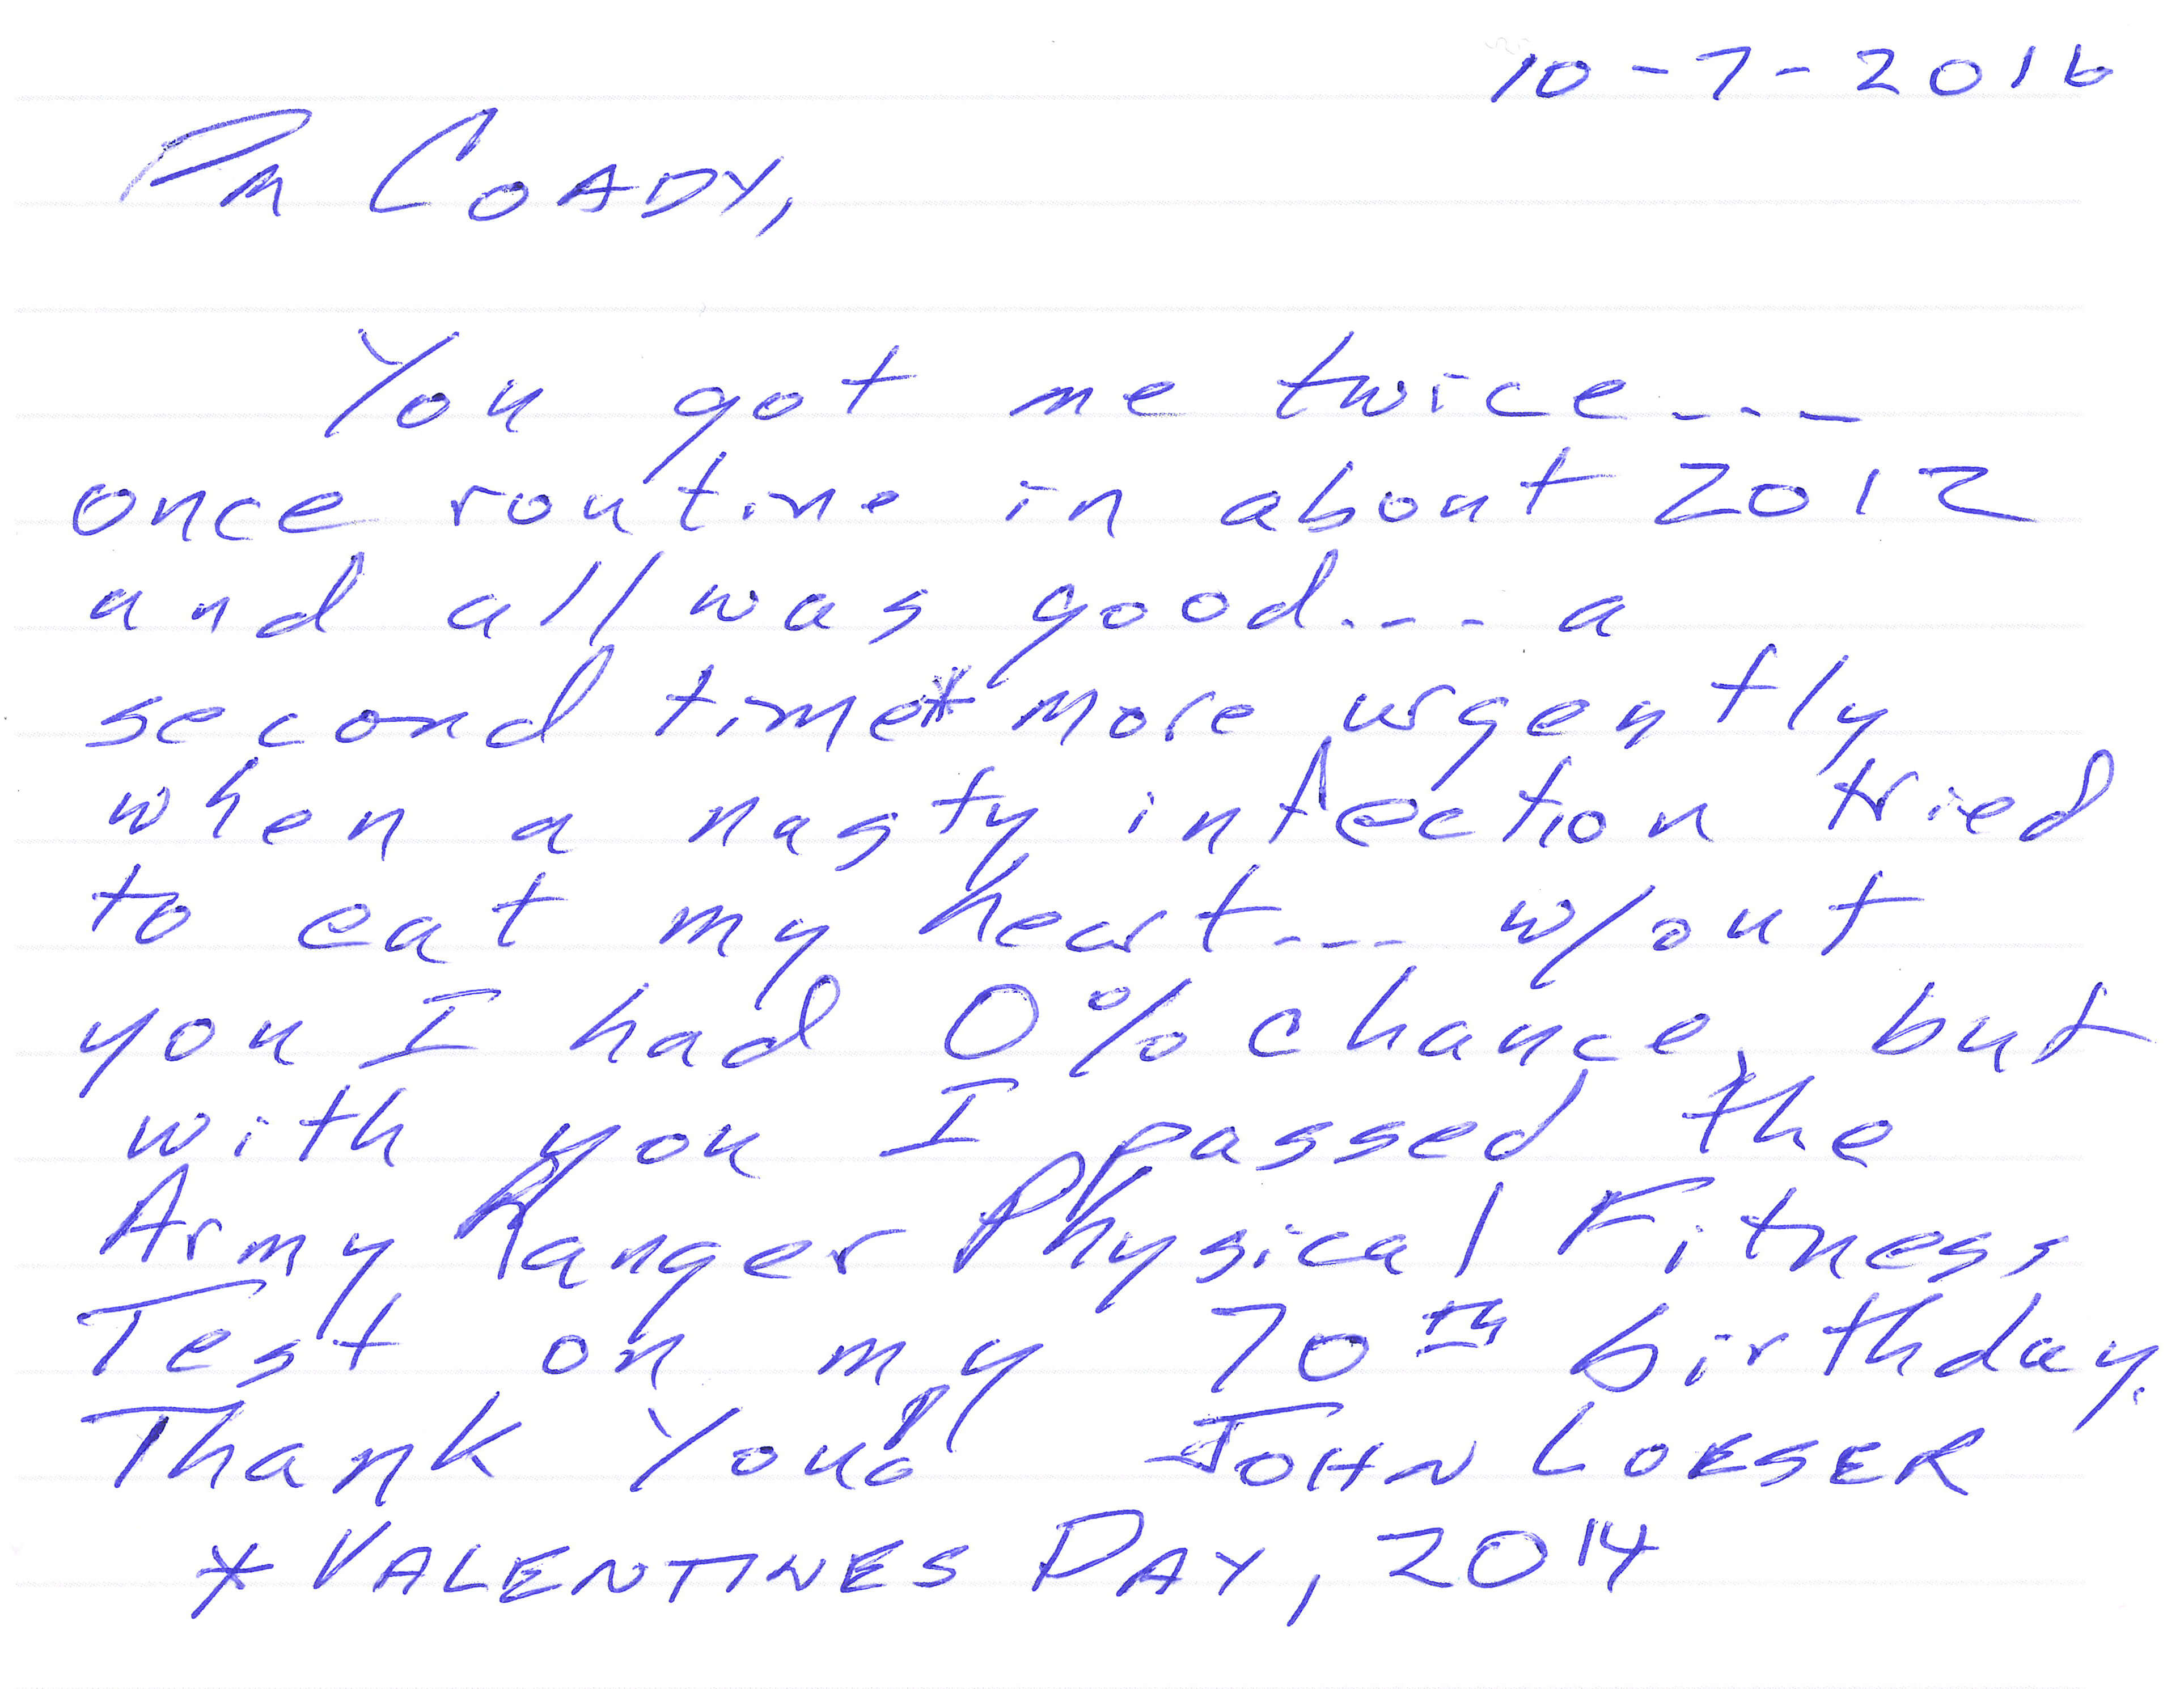 10-7-2016
Dr Coady,
You got me twice---
once routine in about 2012
and all was good--- a
second time* more urgently
when a nasty infection tried
to eat my heart--- w/out
you I had 0% chance, but
with you I passed the
Army Ranger Physical Fitness
Test on my 70th birthday.
Thank You! JOHN LOESER
* VALENTINES DAY, 2014